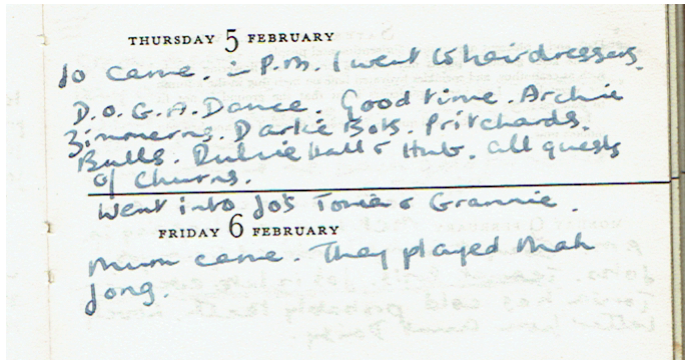 THURSDAY 5 FEBRUARY
Jo came. in P.M. I went to hairdressers.
D.O.G.A. Dance. Good time. Archie
Zimmerns. Darkie Bots. Pritchards.
Bulls. Dulcie Hall & Hub. all guests
of Churns.
Went into Jo's Tonia & Grannie.
FRIDAY 6 FEBRUARY
Mum came. They played Mah
Jong.